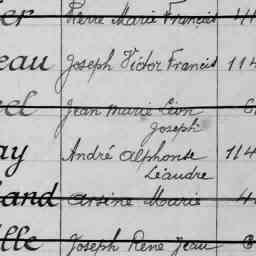 er Pierre Marie François 4
eau Joseph Victor Francis 114
el Jean Marie Léon
Joseph
ay André Alphonse 114
Léandre
and Arsène Marie 4
lle Joseph René Jean